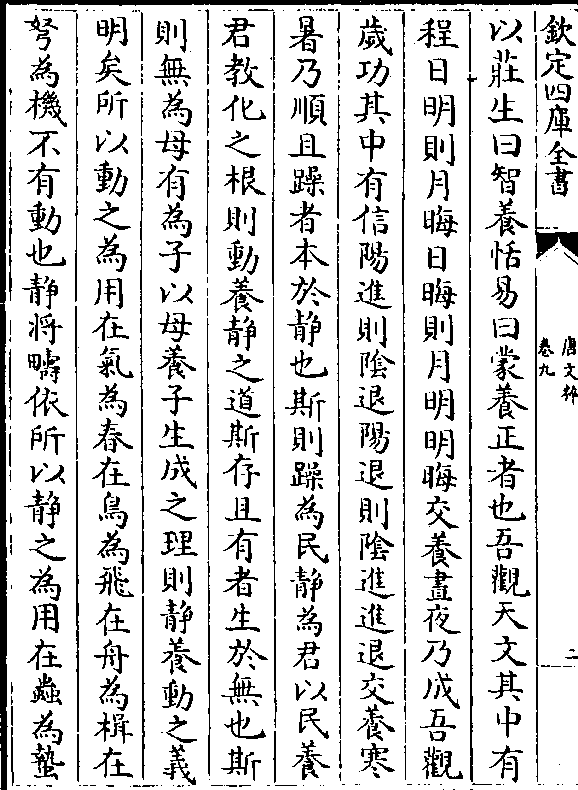 欽定四庫全書
唐文粹
卷九
二
以莊生曰智養恬易曰蒙養正者也吾觀天文其中有
程日明則月晦日晦則月明明晦交養晝夜乃成吾觀
歲功其中有信陽進則陰退陽退則陰進進退交養寒
暑乃順且躁者本於静也斯則躁為民静為君以民養
君教化之根則動養静之道斯存且有者生於無也斯
則無為母有為子以母養子生成之理則静養動之義
明矣所以動之為用在氣為春在鳥為飛在舟為楫在
弩為機不有動也静將疇依所以静之為用在蟲為蟄